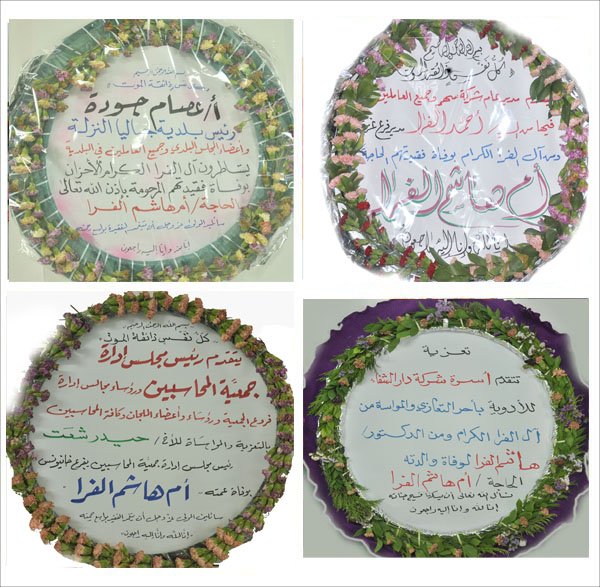 بسم الله الرحمن الرحيم
كل نفس ذائقة الموت
أ/عصام جودة
رئيس بلدية جباليا النزلة
وأعضاء المجلس البلدي وجميع العاملين في البلدية
يشاطرون آل الفرا الكرام الأحزان
بوفاة فقيدتهم المرحومة بإذن الله تعالى
الحاجة/أم هاشم الفرا
سائلين المولى عز وجل أن يتغمد الفقيدة بواسع رحمته
إنا لله وإنا إليه راجعون
بسم الله الرحمن الرحيم
كل نفس ذائقة الموت
يتقدم مدير عام شركة سهر وجميع العاملين
فيها من أحمد الفرا مدير فرع غزة
ومن آل الفرا الكرام بوفاة فقيدتهم الحاجة
أم هاشم الفرا
إنا لله وإنا إليه راجعون
بسم الله الرحمن الرحيم
كل نفس ذائقة الموت
يتقدم رئيس مجلس إدارة
جمعية المحاسبين ورؤساء مجالس إدارة
فروع الجمعية ورؤساء وأعضاء اللجان وكافة المحاسبين
بالتعزية والمواساة للأخ/حيدر شعت
رئيس مجلس إدارة جمعية المحاسبين بفرع خانيونس
بوفاة عمته- أم هاشم الفرا
سائلين المولى عز وجل أن يتغمد الفقيدة بواسع رحمته
إنا لله وإنا إليه راجعون
تعزية
تتقدم أسرة شركة دار الشفاء
للأدوية بأحر التعازي والمواساة من
آل الفرا الكرام ومن الدكتور/
هاشم الفرا لوفاة والدته
الحاجة/أم هاشم الفرا
نسأل الله تعالى أن يسكنها فسيح جناته
إنا لله وإنا إليه راجعون